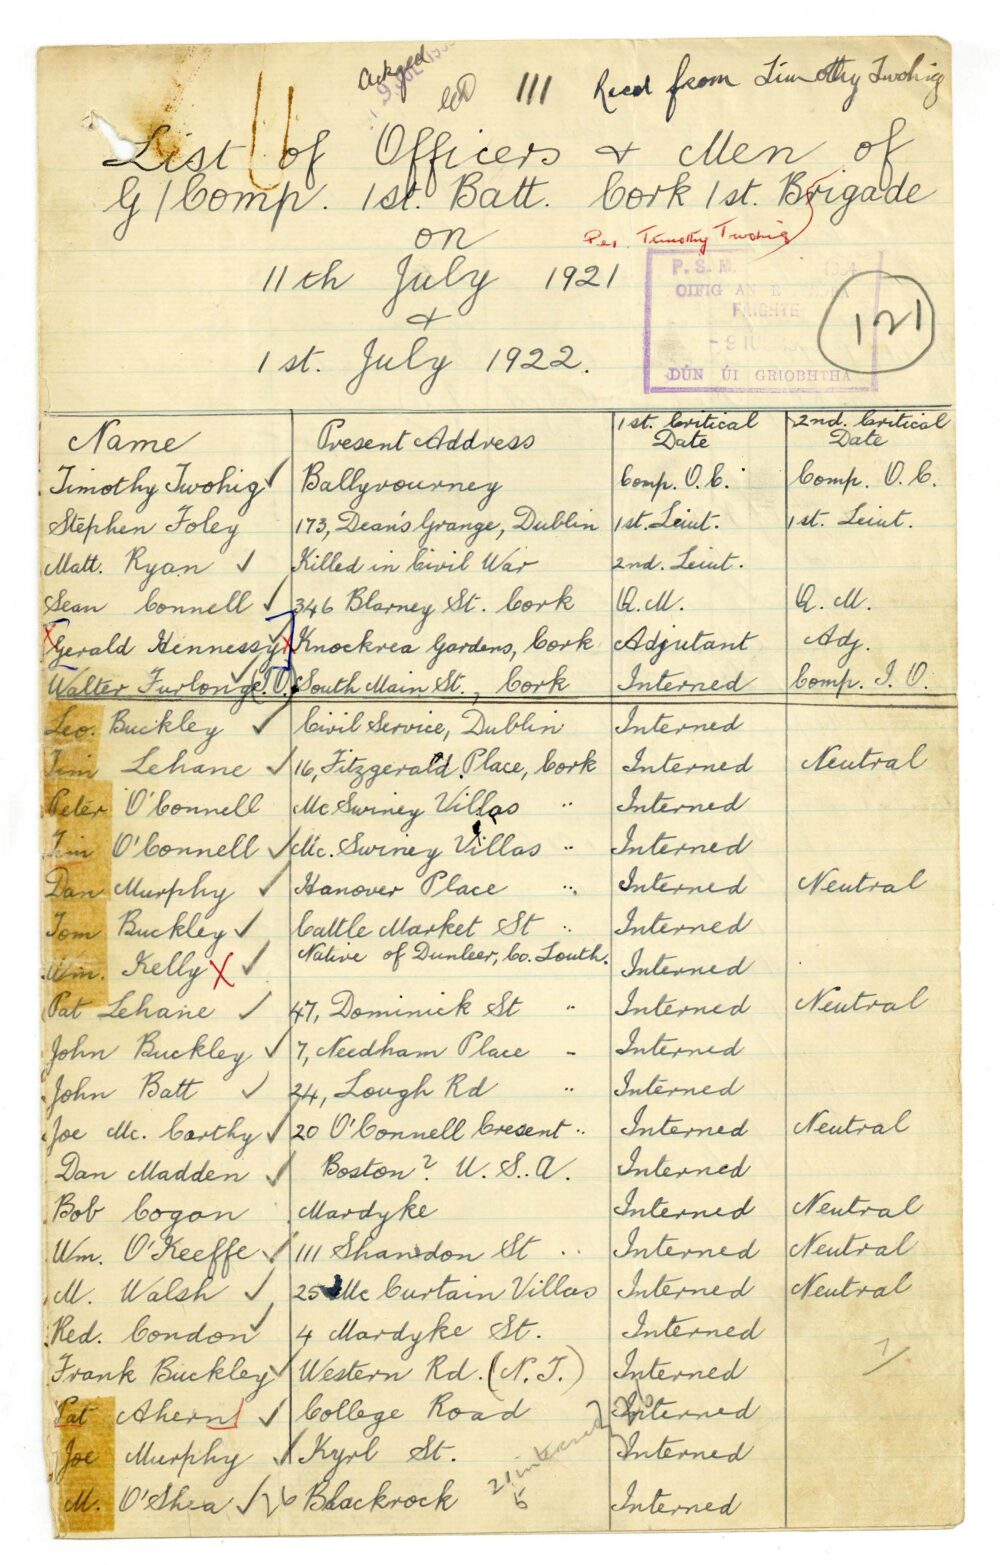 Ackged
111 Recd from Timothy Twohig
List of Officers & Men of
G/Comp. 1st. Batt. Cork 1st. Brigade
on
Per. Timothy Twohig
11th July 1921
&
1st. July 1922.
P. S. M.
OIFIG AN
FAIGHTE
DÚN ÚI GRIOBHTHA
121
Name Present Address 1st. Critical Date 2nd. Critical Date
Timothy Twohig ✓ Ballyvourney Comp. O.C. Comp. O.C.
Stephen Foley 173, Dean's Grange, Dublin 1st. Leiut. 1st. Leiut.
Matt. Ryan ✓ Killed in Civil War 2nd. Leiut.
Sean Connell ✓ 346 Blarney St. Cork Q.M. Q.M.
X Gerald Hennessy X Knockrea Gardens, Cork Adjutant Adj.
Walter Furlong South Main St., Cork Interned Comp. I.O.
Leo. Buckley ✓ Civil Service, Dublin Interned
Tim Lehane ✓ 16, Fitzgerald Place, Cork Interned Neutral
Peter O'Connell Mc Swiney Villas " Interned
Tim O'Connell ✓ Mc. Swiney Villas " Interned
Dan Murphy ✓ Hanover Place " Interned Neutral
Tom Buckley ✓ Cattle Market St " Interned
Wm. Kelly X ✓ Native of Dunleer, Co. Louth. Interned
Pat Lehane ✓ 47, Dominick St " Interned Neutral
John Buckley ✓ 7, Needham Place - Interned
John Batt ✓ 24, Lough Rd " Interned
Joe Mc. Carthy ✓ 20 O'Connell Cresent " Interned Neutral
Dan Madden ✓ Boston? U.S.A. Interned
Bob Cogan Mardyke Interned Neutral
Wm. O'Keeffe ✓ 111 Shandon St " Interned Neutral
M. Walsh ✓ 25 Mc Curtain Villas Interned Neutral
Red. Condon ✓ 4 Mardyke St. Interned
Frank Buckley ✓ Western Rd. (N.T.) Interned
Pat Ahern ✓ College Road Interned
Joe Murphy ✓ Kyrl St. Interned
M. O'Shea ✓ 26 Blackrock Interned